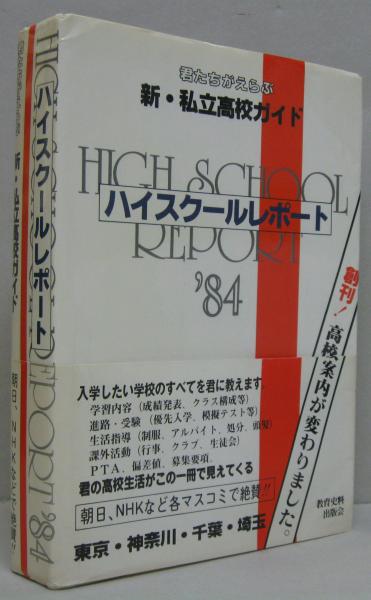 君たちがえらぶ
新・私立高校ガイド
HIGH SCHOOL
ハイスクールレポート
REPORT
'84
創刊！高校案内が変わりました。
入学したい学校のすべてを君に教えます
学習内容（成績発表、クラス構成等）
進路・受験（優先入学、模擬テスト等）
生活指導（制服、アルバイト、処分、頭髪）
課外活動（行事、クラブ、生徒会）
PTA、偏差値、募集要項。
君の高校生活がこの一冊で見えてくる
朝日、NHKなど各マスコミで絶賛!!
東京・神奈川・千葉・埼玉
教育史料
出版会
ハイスクールレポート
REPORT '84
新・私立高校ガイド
朝日、NHKなどで絶賛!!